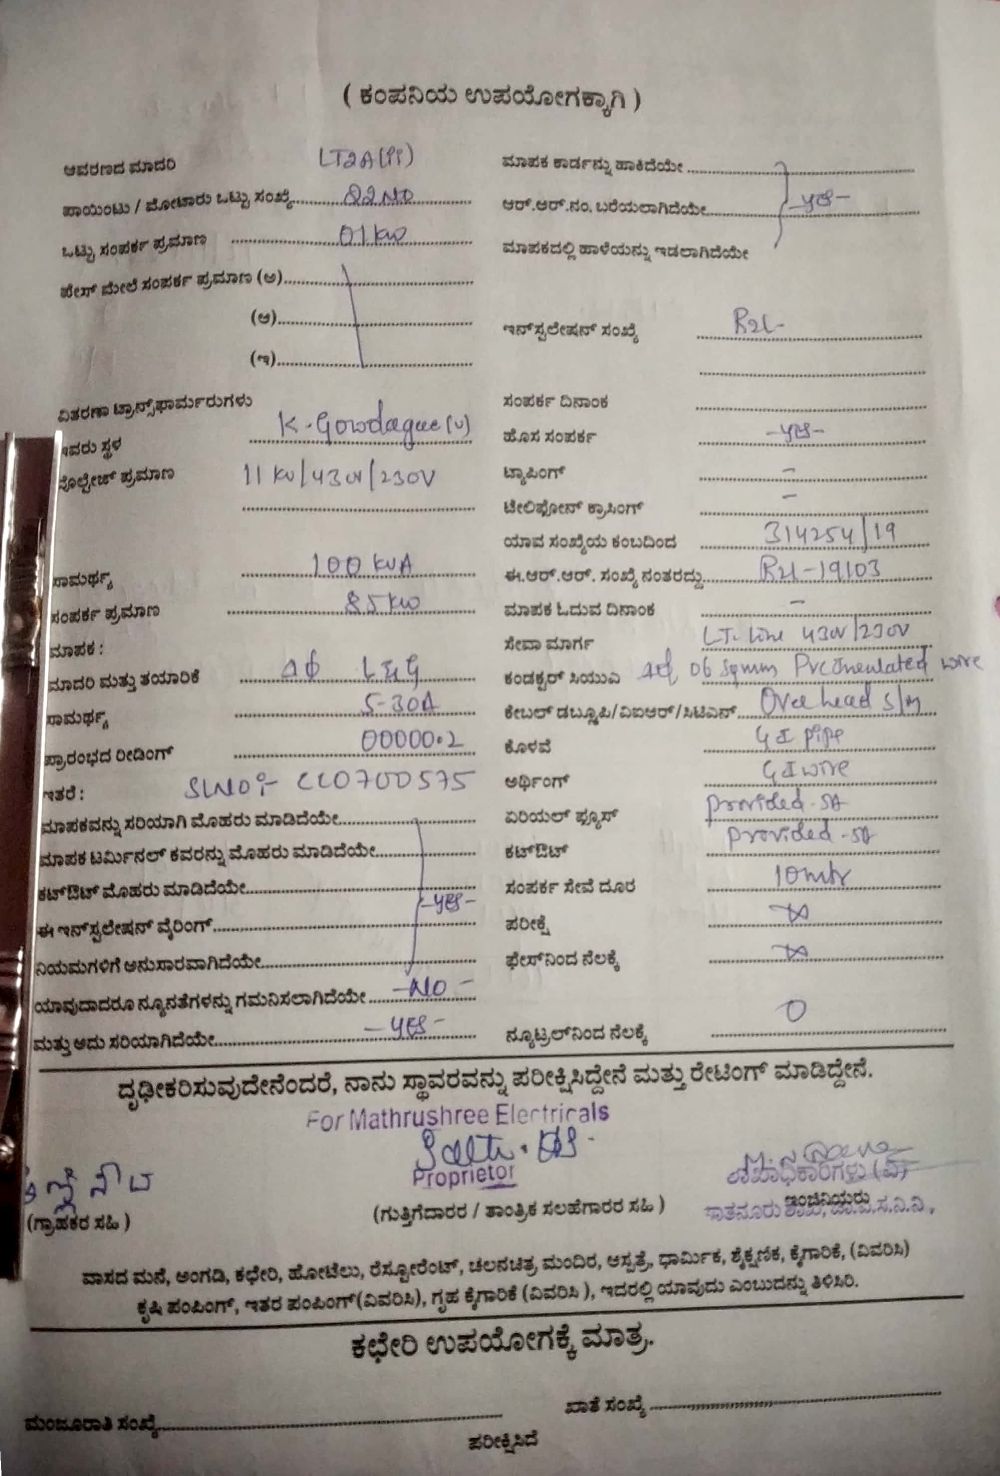 ( ಕಂಪನಿಯ ಉಪಯೋಗಕ್ಕಾಗಿ )
ಆವರಣದ ಮಾದರಿ LT2A(ii)
ಪಾಯಿಂಟು / ಮೋಟಾರು ಒಟ್ಟು ಸಂಖ್ಯೆ 02 NO
ಒಟ್ಟು ಸಂಪರ್ಕ ಪ್ರಮಾಣ 01 KW
ಫೇಸ್ ಮೇಲೆ ಸಂಪರ್ಕ ಪ್ರಮಾಣ (ಅ)
(ಆ)
(ಇ)
ವಿತರಣಾ ಟ್ರಾನ್ಸ್‌ಫಾರ್ಮರುಗಳು
ಇವರು ಸ್ಥಳ K. Gowdagere (V)
ವೋಲ್ಟೇಜ್ ಪ್ರಮಾಣ 11 KV/430V/230V
ಸಾಮರ್ಥ್ಯ 100 KVA
ಸಂಪರ್ಕ ಪ್ರಮಾಣ 85 KW
ಮಾಪಕ :
ಮಾದರಿ ಮತ್ತು ತಯಾರಿಕೆ L&G
ಸಾಮರ್ಥ್ಯ 5-30A
ಪ್ರಾರಂಭದ ರೀಡಿಂಗ್ 00000.2
ಇತರೆ : SLNO:- CC0700575
ಮಾಪಕವನ್ನು ಸರಿಯಾಗಿ ಮೊಹರು ಮಾಡಿದೆಯೇ
ಮಾಪಕ ಟರ್ಮಿನಲ್ ಕವರನ್ನು ಮೊಹರು ಮಾಡಿದೆಯೇ
ಕಟ್‌ಔಟ್ ಮೊಹರು ಮಾಡಿದೆಯೇ
-YES-
ಈ ಇನ್‌ಸ್ಟಲೇಷನ್ ವೈರಿಂಗ್
ನಿಯಮಗಳಿಗೆ ಅನುಸಾರವಾಗಿದೆಯೇ
ಯಾವುದಾದರೂ ನ್ಯೂನತೆಗಳನ್ನು ಗಮನಿಸಲಾಗಿದೆಯೇ -NO-
ಮತ್ತು ಅದು ಸರಿಯಾಗಿದೆಯೇ -YES-
ಮಾಪಕ ಕಾರ್ಡನ್ನು ಹಾಕಿದೆಯೇ
ಆರ್.ಆರ್.ನಂ. ಬರೆಯಲಾಗಿದೆಯೇ -YES-
ಮಾಪಕದಲ್ಲಿ ಹಾಳೆಯನ್ನು ಇಡಲಾಗಿದೆಯೇ
ಇನ್‌ಸ್ಟಲೇಷನ್ ಸಂಖ್ಯೆ
ಸಂಪರ್ಕ ದಿನಾಂಕ
ಹೊಸ ಸಂಪರ್ಕ -YES-
ಟ್ಯಾಪಿಂಗ್ -
ಟೇಲಿಫೋನ್ ಕ್ರಾಸಿಂಗ್ -
ಯಾವ ಸಂಖ್ಯೆಯ ಕಂಬದಿಂದ 314254/19
ಈ.ಆರ್.ಆರ್. ಸಂಖ್ಯೆ ನಂತರದ್ದು -19103
ಮಾಪಕ ಓದುವ ದಿನಾಂಕ -
ಸೇವಾ ಮಾರ್ಗ LT. Line 430V/230V
ಕಂಡಕ್ಟರ್ ಸಿಯುವಿ 06 Sqmm Pvc Insulated wire
ಕೇಬಲ್ ಡಬ್ಲೂಪಿ/ವಿಐಆರ್/ಸಿಟಿಎನ್ Over head S/m
ಕೊಳವೆ GI pipe
ಅರ್ಥಿಂಗ್ GI wire
ಏರಿಯಲ್ ಫ್ಯೂಸ್ provided - 5A
ಕಟ್‌ಔಟ್ provided - 5A
ಸಂಪರ್ಕ ಸೇವೆ ದೂರ 10 mtr
ಪರೀಕ್ಷೆ
ಫೇಸ್‌ನಿಂದ ನೆಲಕ್ಕೆ
ನ್ಯೂಟ್ರಲ್‌ನಿಂದ ನೆಲಕ್ಕೆ 0
ದೃಢೀಕರಿಸುವುದೇನೆಂದರೆ, ನಾನು ಸ್ಥಾವರವನ್ನು ಪರೀಕ್ಷಿಸಿದ್ದೇನೆ ಮತ್ತು ರೇಟಿಂಗ್ ಮಾಡಿದ್ದೇನೆ.
For Mathrushree Electricals
Proprietor
ಶಾಖಾಧಿಕಾರಿಗಳು (ವಿ)
ಇಂಜಿನಿಯರು
ಸಾತನೂರು ಶಾಖೆ, ಚಾ.ವಿ.ಸ.ನಿ.ನಿ.,
(ಗ್ರಾಹಕರ ಸಹಿ )
(ಗುತ್ತಿಗೆದಾರರ / ತಾಂತ್ರಿಕ ಸಲಹೆಗಾರರ ಸಹಿ )
ವಾಸದ ಮನೆ, ಅಂಗಡಿ, ಕಛೇರಿ, ಹೋಟೆಲು, ರೆಸ್ಟೋರೆಂಟ್, ಚಲನಚಿತ್ರ ಮಂದಿರ, ಆಸ್ಪತ್ರೆ, ಧಾರ್ಮಿಕ, ಶೈಕ್ಷಣಿಕ, ಕೈಗಾರಿಕೆ, (ವಿವರಿಸಿ)
ಕೃಷಿ ಪಂಪಿಂಗ್, ಇತರ ಪಂಪಿಂಗ್(ವಿವರಿಸಿ), ಗೃಹ ಕೈಗಾರಿಕೆ (ವಿವರಿಸಿ ), ಇದರಲ್ಲಿ ಯಾವುದು ಎಂಬುದನ್ನು ತಿಳಿಸಿರಿ.
ಕಛೇರಿ ಉಪಯೋಗಕ್ಕೆ ಮಾತ್ರ.
ಮಂಜೂರಾತಿ ಸಂಖ್ಯೆ
ಖಾತೆ ಸಂಖ್ಯೆ
ಪರೀಕ್ಷಿಸಿದೆ